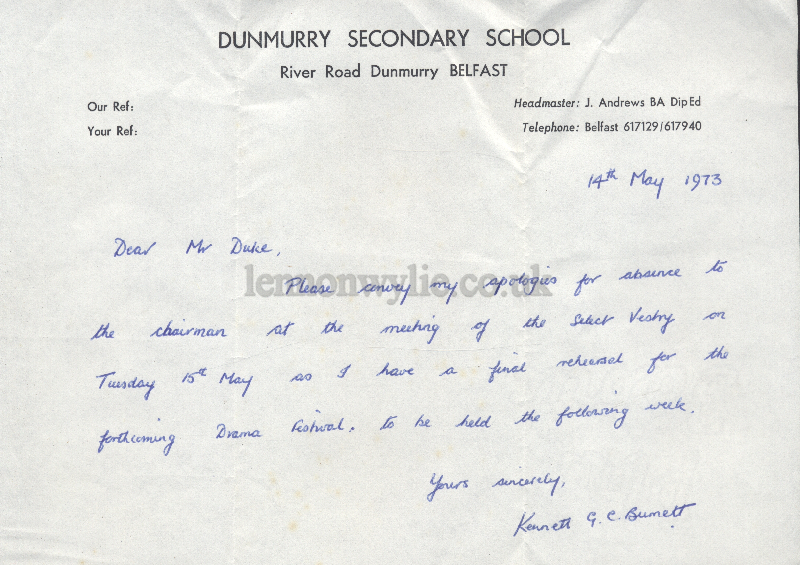 DUNMURRY SECONDARY SCHOOL
River Road Dunmurry BELFAST
Our Ref:
Headmaster: J. Andrews BA DipEd
Your Ref:
Telephone: Belfast 617129/617940
14th May 1973
Dear Mr Duke,
lennonwylie.co.uk
Please convey my apologies for absence to
the chairman at the meeting of the Select Vestry on
Tuesday 15th May as I have a final rehearsal for the
forthcoming Drama Festival. to be held the following week.
Yours sincerely,
Kenneth G. C. Burnett